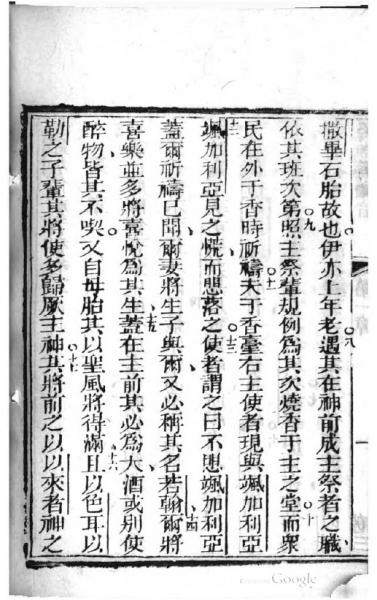 撒畢石胎故也伊亦上年老八遇其在神前成主祭者之職
依其班次第九照主祭軰規例為其次燒香于主之堂而十衆
民在外于香時祈禱十一夫于香臺右主使者現與颯加利亞
十二颯加利亞見之慌而懼落之十三使者謂之曰不懼颯加利亞
葢爾祈禱已聞爾妻將生子與爾又必稱其名若翰十四爾將
喜樂並多將喜悅為其生十五葢在主前其必為大酒或別使
醉物皆其不喫又自母胎其以聖風將得滿十六且以色耳以
勒之子軰其將使多歸厥主神十七其將前之以以來者神之
Google